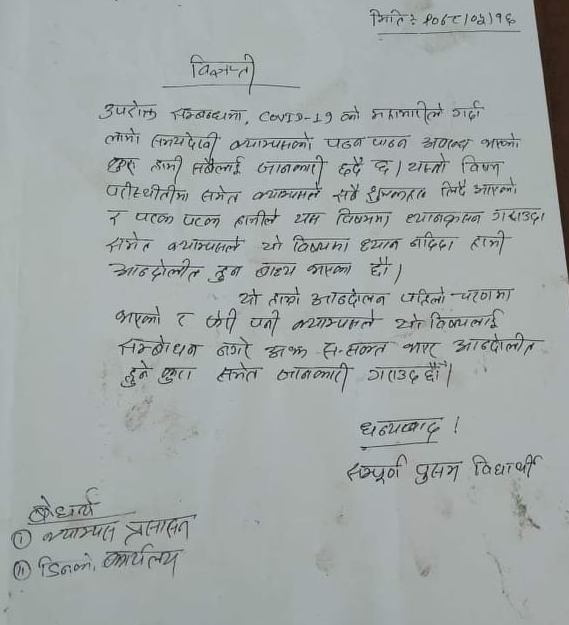 मिति: २०७८/०५/१६
विज्ञप्ती
उपरोक्त सम्बन्धमा, COVID-19 को महामारीले गर्दा
लामो समयदेखी क्याम्पसको पठन पाठन अवरुद्ध भएको
कुरा हामी सबैलाई जानकारी छदै छ। यस्तो विषम
परिस्थीतीमा समेत क्याम्पसले सबै शुल्कहरु लिदै आएको
र पटक पटक हामीले यस विषयमा ध्यानाकर्षण गराउदा
समेत क्याम्पसले यो विषयमा ध्यान नदिदा हामी
आन्दोलीत हुन बाध्य भएका छौ।
यो हाम्रो आन्दोलन पहिलो चरणमा
भएको र फेरी पनी क्याम्पसले यो विषयलाई
सम्बोधन नगरे अझ सःसक्त भएर आन्दोलीत
हुने कुरा समेत जानकारी गराउद छौं।
धन्यवाद !
सम्पूर्ण पुसम विद्यार्थी
बोधार्थ
(i) क्याम्पस प्रसासन
(ii) डिनको कार्यलय